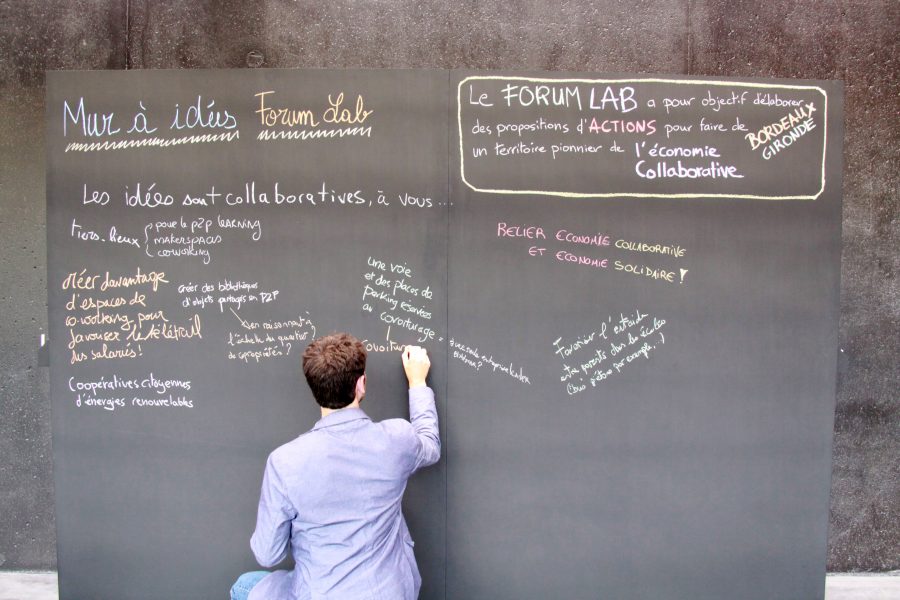 Mur à idées Forum Lab
Les idées sont collaboratives, à vous...
Tiers-lieux
pour le p2p learning
makerspaces
coworking
Créer davantage
d'espaces de
co-working pour
favoriser le télétrail
des salariés!
Coopératives citoyennes
d'énergies renouvelables
Créer des bibliothèques
d'objets partagés en P2P
en raisonnant à
l'échelle du quartier ou
de copropriétés?
une voie
et des places de
parking réservées
au covoiturage
covoitur
Le FORUM LAB a pour objectif d'élaborer
des propositions d'ACTIONS pour faire de
BORDEAUX
GIRONDE
un territoire pionnier de l'économie
Collaborative
RELIER ECONOMIE COLLABORATIVE
ET ECONOMIE SOLIDAIRE!
Favoriser l'entraide
entre parents dans les écoles
(bus pédestre par exemple...)